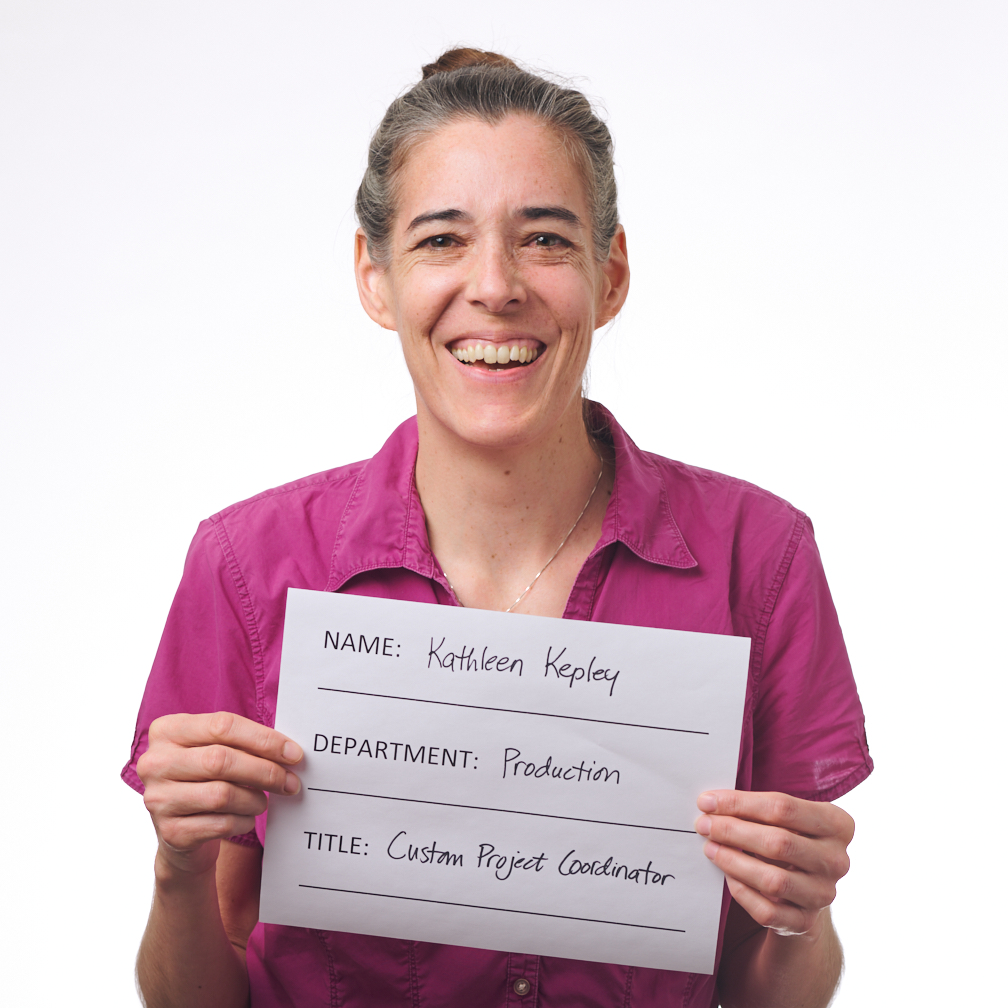 NAME: Kathleen Kepley
DEPARTMENT: Production
TITLE: Custom Project Coordinator